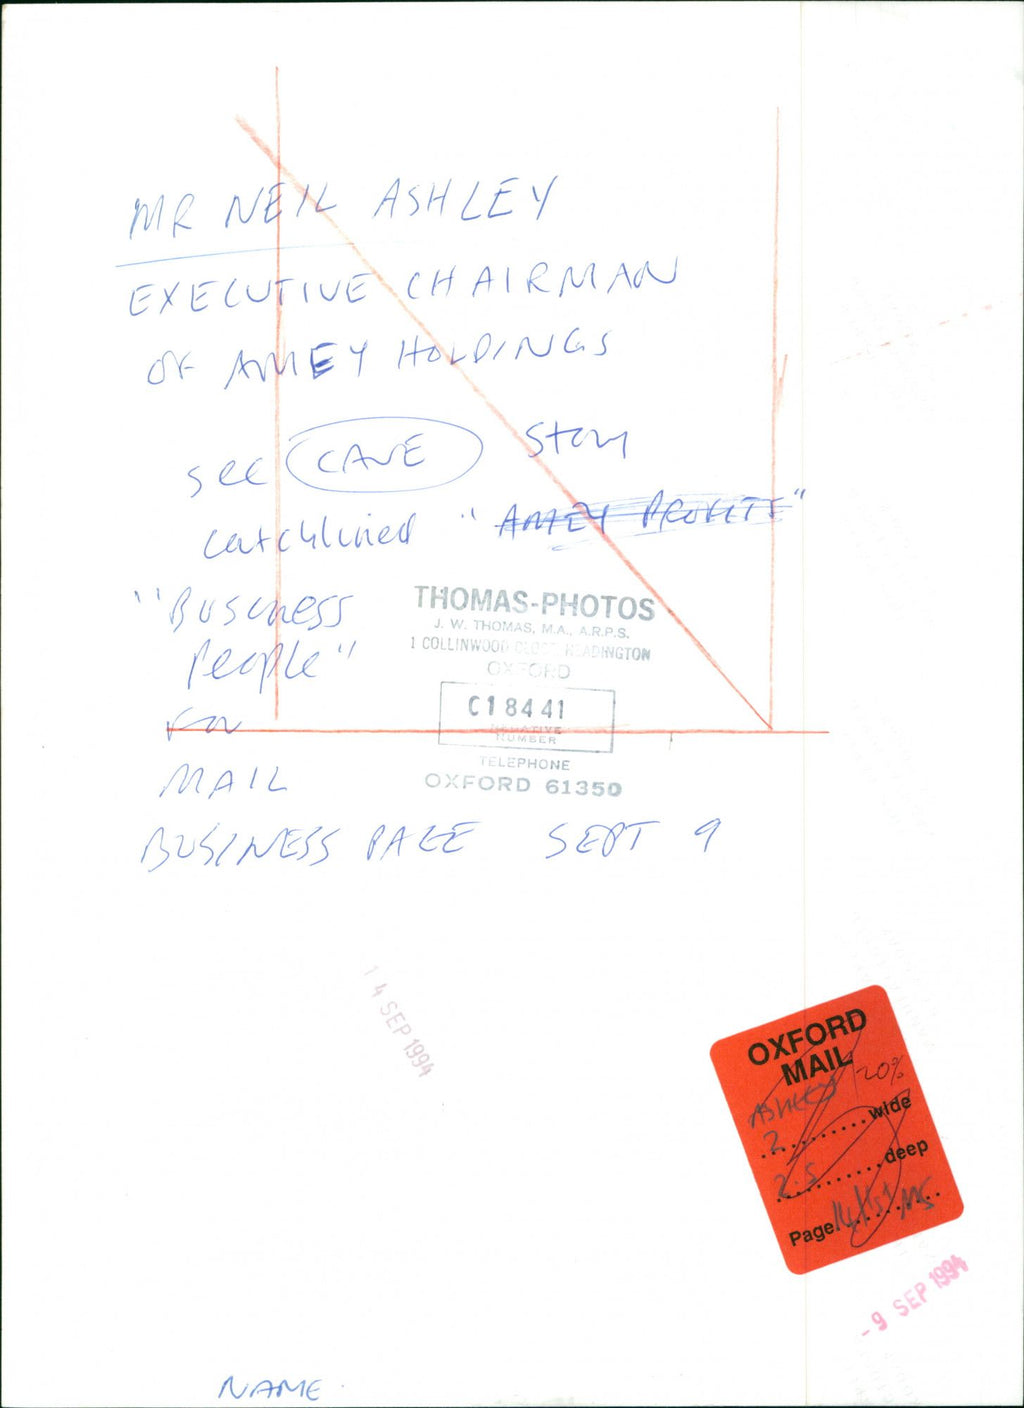 MR NEIL ASHLEY
EXECUTIVE CHAIRMAN
OF AMEY HOLDINGS
see CAVE story
catchlined "AMEY PROFITS"
"Business
People"
For
MAIL
BUSINESS PAGE SEPT 9
THOMAS-PHOTOS
J. W. THOMAS, M.A., A.R.P.S.
1 COLLINWOOD CLOSE HEADINGTON
OXFORD
C18441
NEGATIVE
NUMBER
TELEPHONE
OXFORD 61350
14 SEP 1994
OXFORD
MAIL
ASHLEY 120%
2 wide
2.5 deep
Page
- 9 SEP 1994
NAME